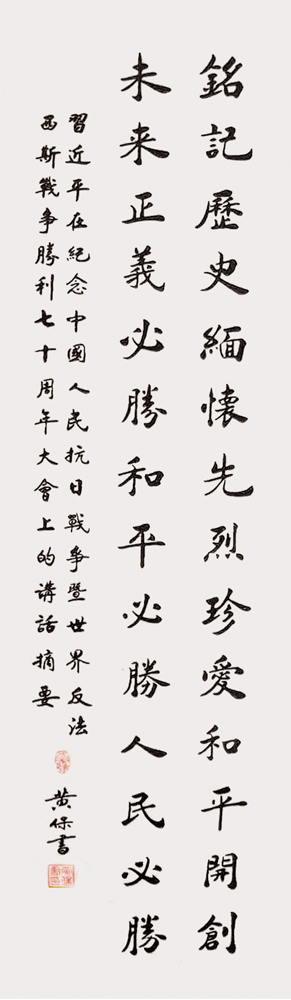 銘記歷史緬懷先烈珍愛和平開創
未来正義必勝和平必勝人民必勝
習近平在紀念中國人民抗日戰爭暨世界反法
西斯戰爭勝利七十周年大會上的講話摘要
黄保書